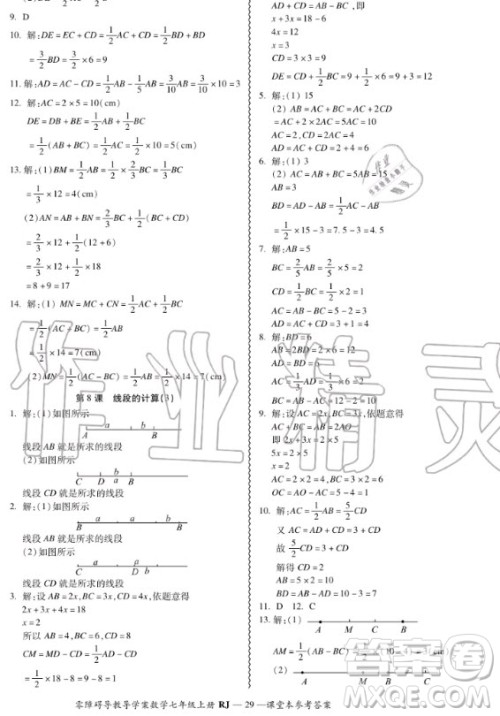 9. D
10. 解:DE=DC+CE=1/2AC+1/2BC
=1/2×6=9
11. 解:AD=AC-CD=1/2AB-1/5AB=3/10AB=3/10×10=3
12. 解:AC=2×5=10(cm)
DE=DB+BE=1/2AB+1/2BC
=1/2(AB+BC)=1/2AC=1/2×10=5(cm)
13. 解:(1)BM=1/2AB=1/2×2/3BC=1/3BC
=1/3×12=4(cm)
(2)AN=AB+BN=2/3BC+1/2(BC+CD)
=2/3×12+1/2(12+CD)
=2/3×12+1/2×18
=8+9=17
14. 解:(1)MN=MC+CN=1/2AC+1/2BC
=1/2(AC+BC)=1/2AB
=1/2×14=7(cm)
(2)MN=1/2(AC-BC)=1/2AB=1/2×14=7(cm)
第8课 线段的计算(3)
1. 解:(1)如图所示
A B
线段AB就是所求的线段
(2)如图所示
C b D a
线段CD就是所求的线段
2. 解:(1)如图所示
A a b B
线段AB就是所求的线段
(2)如图所示
C D b
线段CD就是所求的线段
3. 解:设AB=2x,BC=3x,CD=4x,依题意得
2x+3x+4x=18
x=2
所以AB=4,BC=6,CD=8
CM=MD-CD=1/2AD-CD
=1/2×18-8=9-8=1
AD+CD=AB-BC,即
x+3x=18-6
4x=12
x=3
CD=x=3
DE=CD+1/2BC=9+1/2×6=9+3=12
5. 解:(1)15
(2)AB=AC+BC=AC+2CD
=AC+2×2AC=5AC=10
AC=2,CD=4
AD=AC+CD=2+4=6
6. 解:(1)3
(2)BD=AC+BC=AB+5AB=15
AB=3
BD=AD-AB=1/2AC-AB
=1/2×15-3=7.5-3=4.5
7. 解:AB=5
BC=2/5AB=2/5×5=2
CD=1/2BC=1/2×2=1
AC=AB-BC=5-2=3
AD=AC-CD=3-1=2
8. 解:BD=6
AB=2BD=2×6=12
BC=1/3AB=1/3×12=4
AC=AB-BC=12-4=8
9. 解:设AC=2x,BC=3x,依题意得
AC+BC=AB=2AO
即2x+3x=2×5
5x=2×5
x=2
AC=2x=2×2=4
OC=AO-AC=5-4=1
10. 解:AC=1/2AB=5/2CD
又AC=AD+CD=3+CD
故5/2CD=3+CD
解得CD=2
AB=5CD=5×2=10
BD=AB-AD=10-3=7
11. D 12. C
13. 解:(1)
A M C B
AM=1/2(AB-BC)
(2)
A M B C
零障碍导教导学案数学七年级上册 RJ — 29 —课堂本参考答案
作业精灵
答案圈